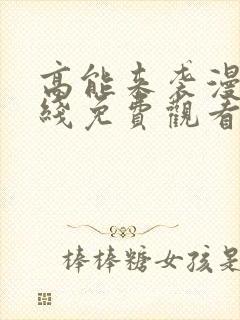 高能来袭漫
綫免費觀看
棒棒糖女孩是